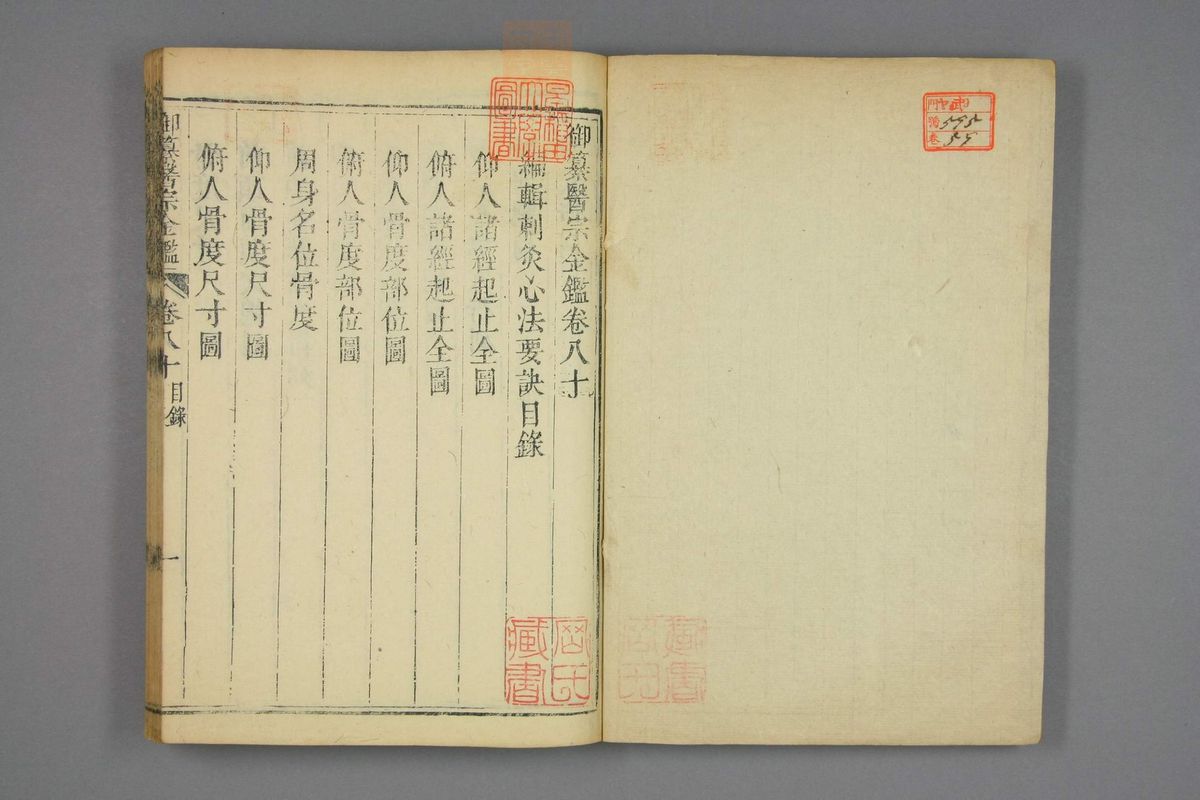 御纂醫宗金鑑卷八十
編輯刺灸心法要訣目錄
仰人諸經起止全圖
俯人諸經起止全圖
仰人骨度部位圖
俯人骨度部位圖
周身名位骨度
仰人骨度尺寸圖
俯人骨度尺寸圖
御纂醫宗金鑑 卷八十 目錄 一
藏書
圖書
門
號
卷